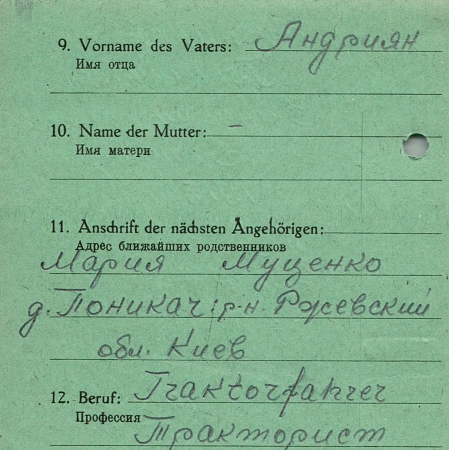 9. Vorname des Vaters: Андриян
Имя отца
10. Name der Mutter: –
Имя матери
11. Anschrift der nächsten Angehörigen:
Адрес ближайших родственников
Мария Муценко
д. Поникач: р-н. Ржевский
обл. Киев
12. Beruf: Traktorfahrer
Профессия
Тракторист